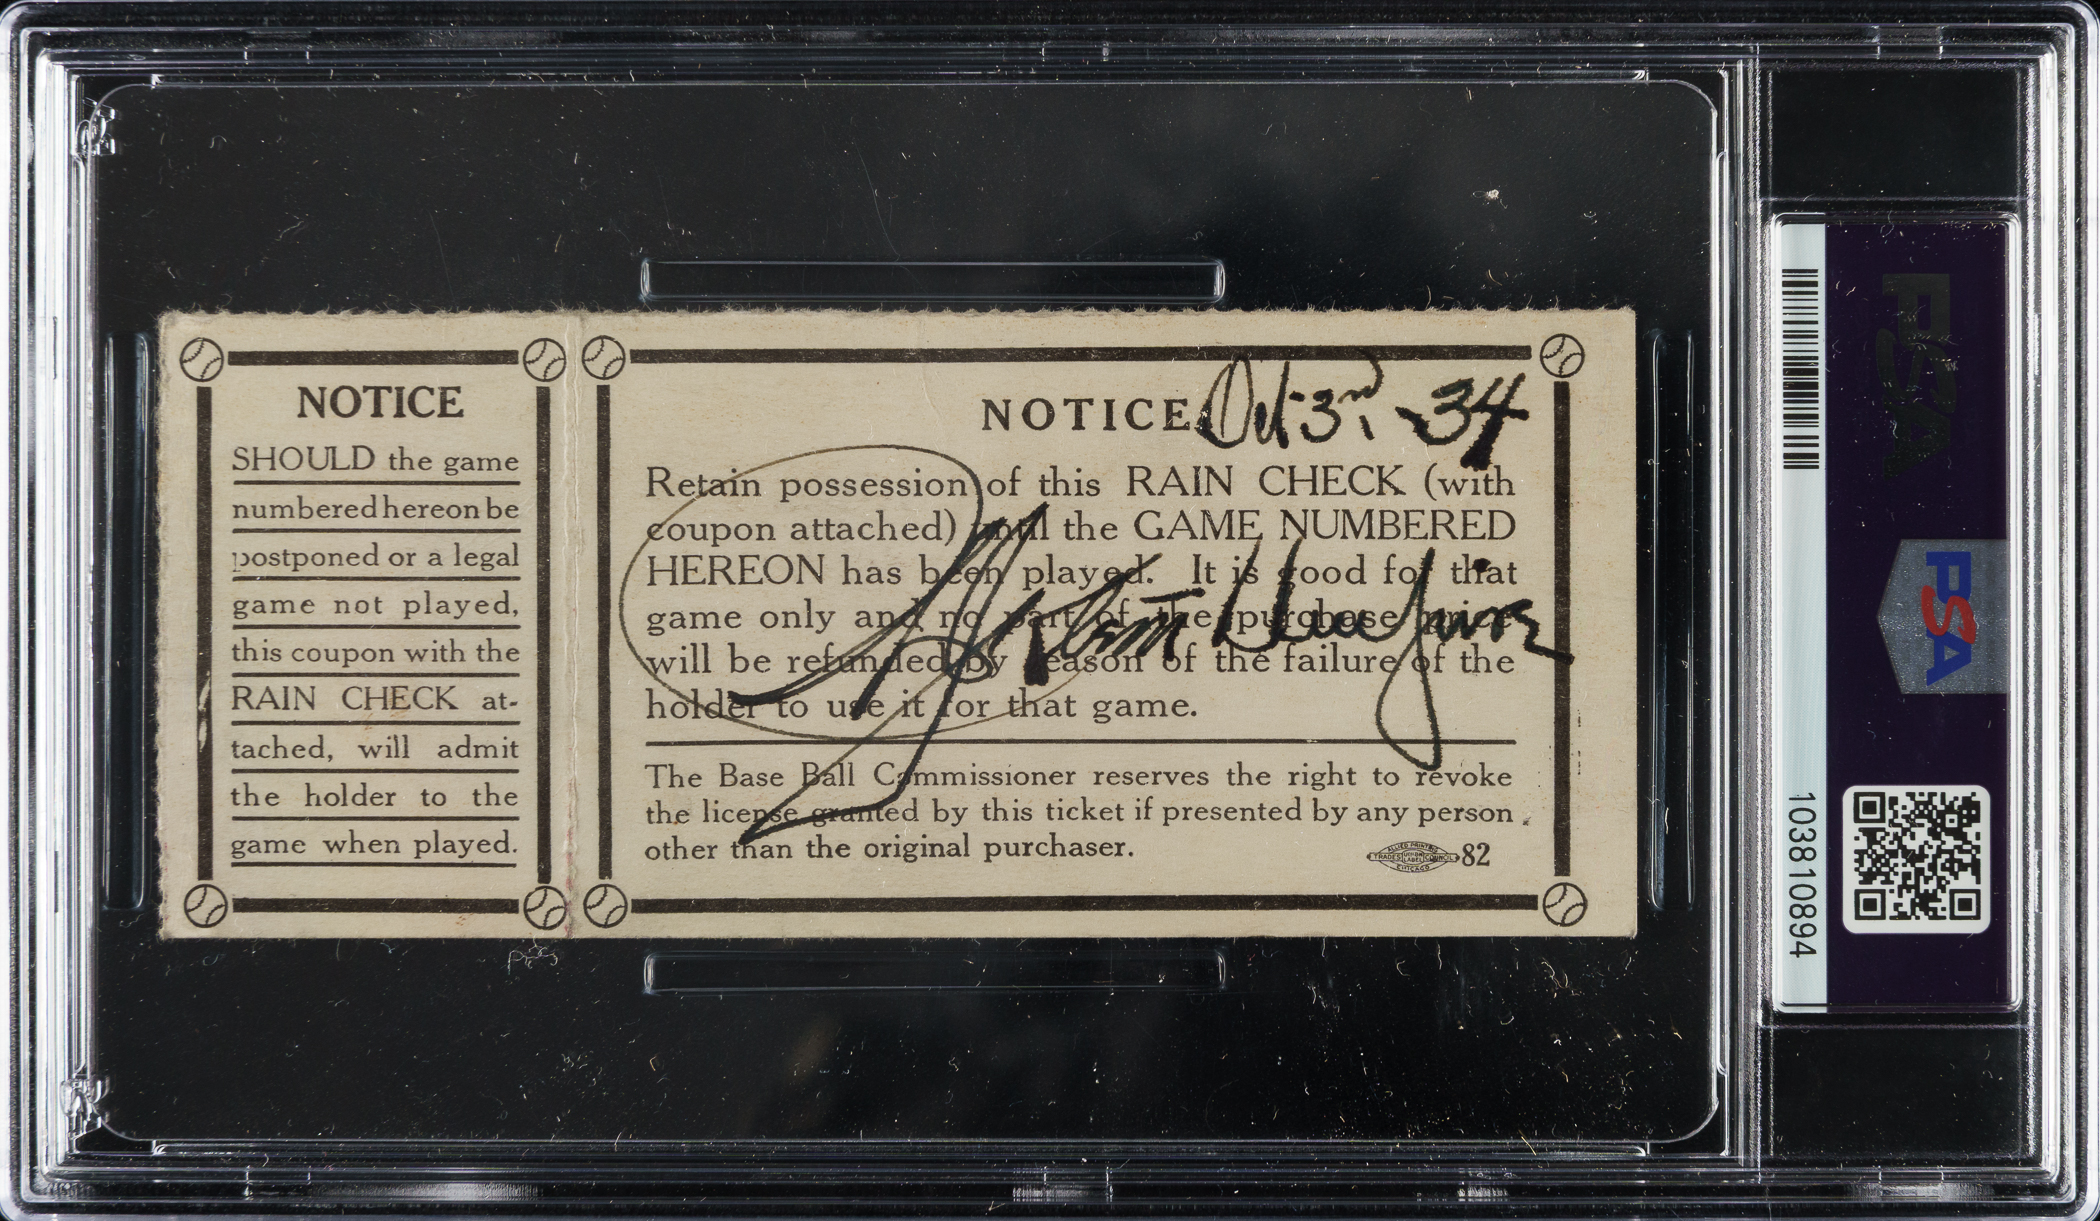 NOTICE
SHOULD the game
numbered hereon be
postponed or a legal
game not played,
this coupon with the
RAIN CHECK at-
tached, will admit
the holder to the
game when played.
NOTICE
Oct 3rd - 34
Retain possession of this RAIN CHECK (with
coupon attached) until the GAME NUMBERED
HEREON has been played. It is good for that
game only and no part of the purchase price
will be refunded by reason of the failure of the
holder to use it for that game.
The Base Ball Commissioner reserves the right to revoke
the license granted by this ticket if presented by any person
other than the original purchaser.
ALLIED PRINTING
TRADES UNION LABEL COUNCIL
CHICAGO
82
PSA
PSA
103810894